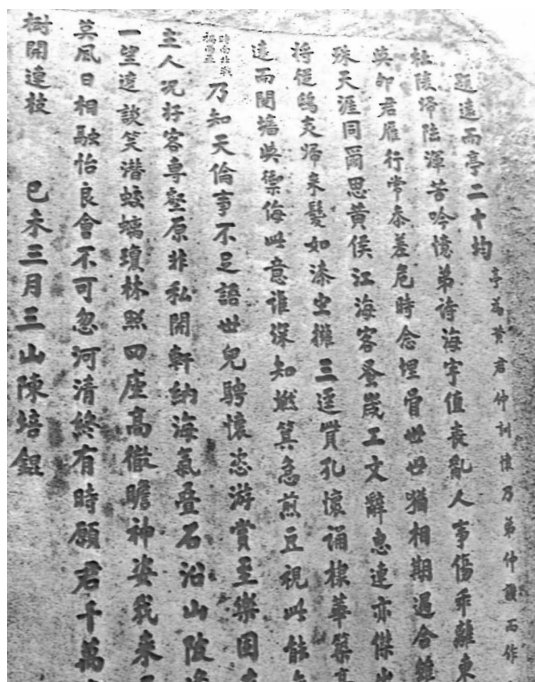 題遠而亭二十均
亭為黄君仲訓懷乃弟仲讚而作
杜陵歸陸渾苦吟憶弟诗海宇值喪亂人事傷乖離東
莫邱君雁行常參差危時念埋骨世世猶相期遇合雖
殊天涯同爾思黄侯江海客發歲工文辭惠連亦傑出
将從鴟夷歸来髮如漆空摧三逕貲孔懷诵棣華築亭
遠而閱墻與禦侮此意谁深知燃箕急煎豆視此能
時南北戰禍
乃知天倫事不足語世兒騁懷恣游賞至樂因
主人况好客專壑原非私開軒納海氣疊石沿山陂
一望遠談笑潛蛟螭瓊林照四座高徹瞻神姿我来
莫風日相融怡良會不可忽河清終有時願君千萬
樹開連枝
已未三月三山陳培錕